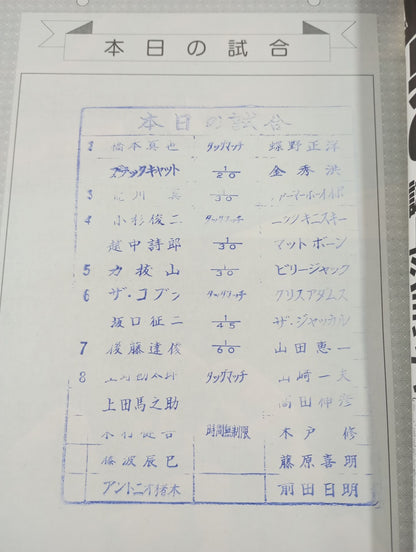 本日の試合
本日の試合
2 橋本真也 タッグマッチ 蝶野正洋
ブラックキャット 1/20 金秀洪
3 1/30
4 小杉俊二 タッグマッチ
越中詩郎 1/30 マットボーン
5 力抜山 1/30 ビリージャック
6 ザ・コブラ タッグマッチ クリスアダムス
坂口征二 1/45 ザ・ジャッカル
7 後藤達俊 1/60 山田恵一
8 タッグマッチ 山崎一夫
上田馬之助 高田伸彦
木村健吾 時間無制限 木戸修
藤波辰巳 藤原喜明
アントニオ猪木 前田日明